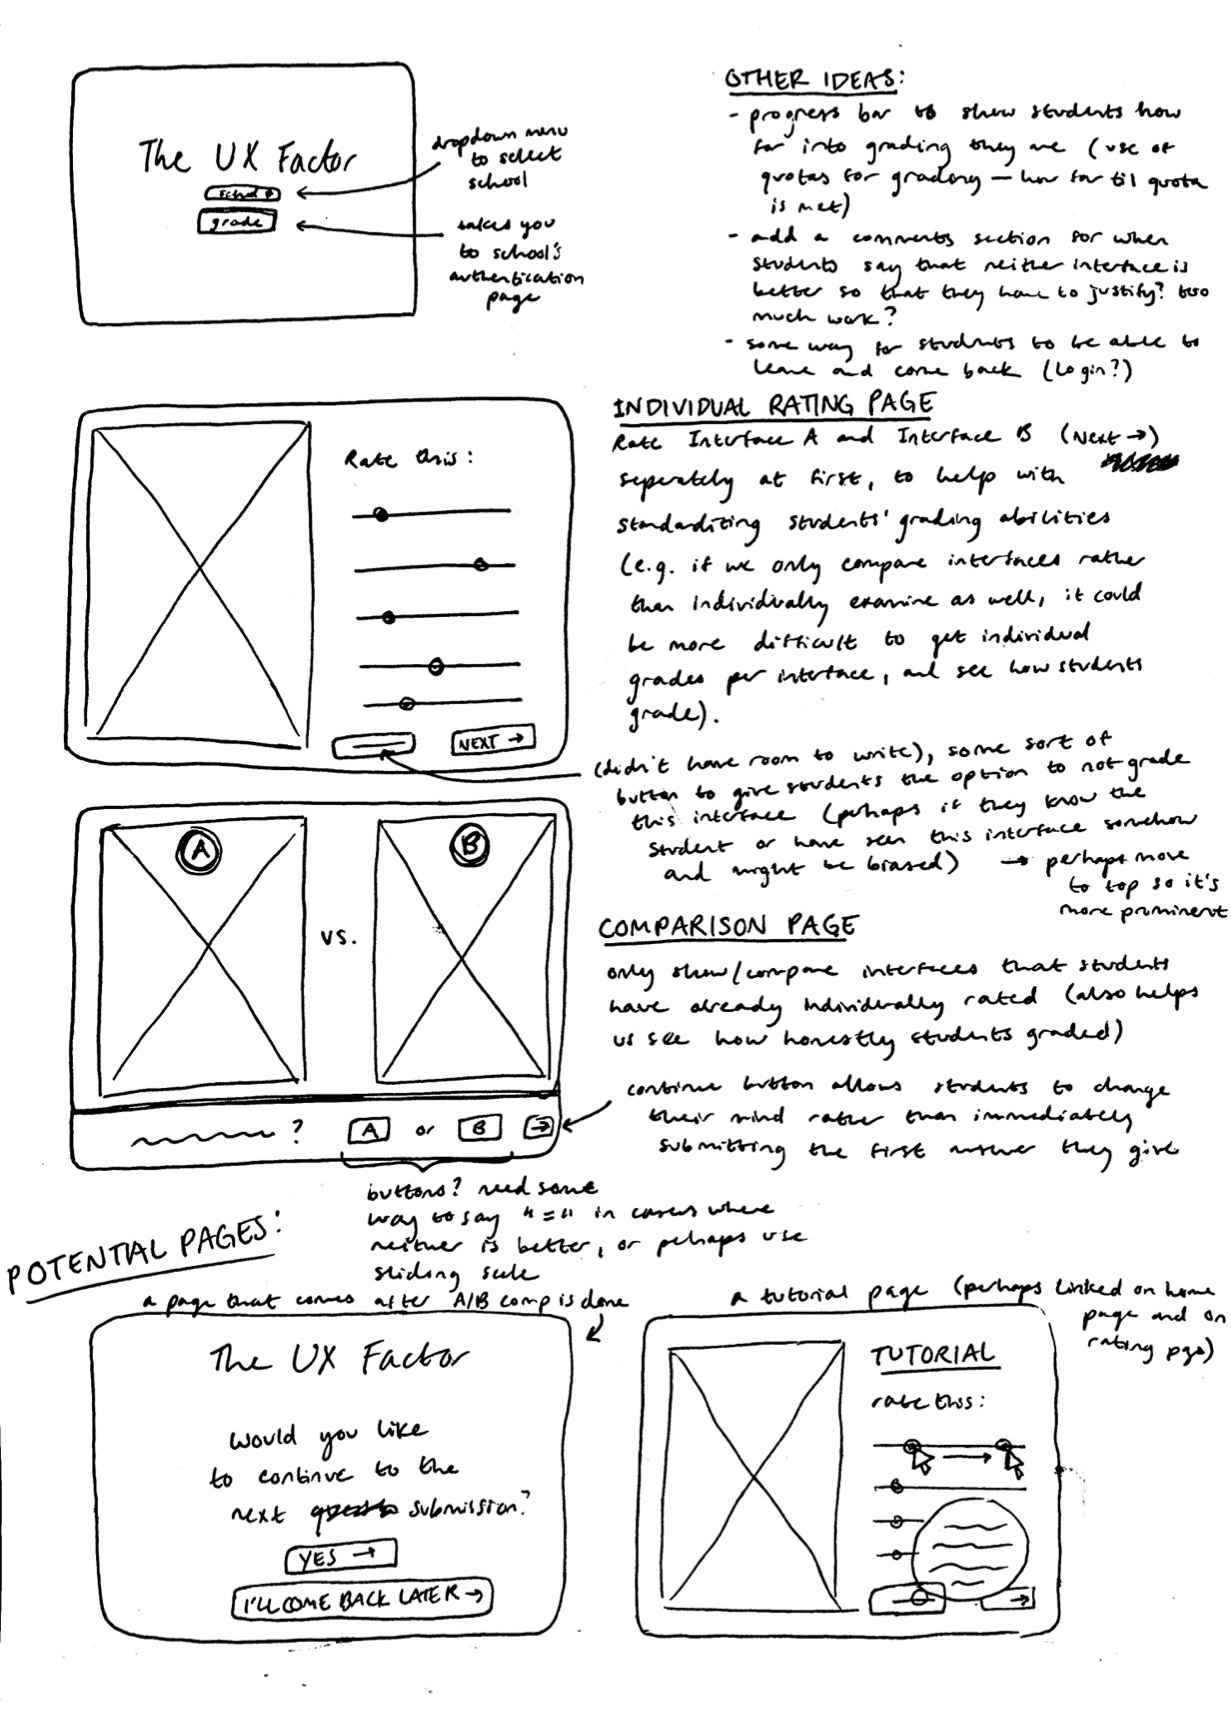 The UX Factor
school
grade
dropdown menu
to select
school
takes you
to school's
authentication
page
OTHER IDEAS:
- progress bar to show students how
far into grading they are (use of
quotas for grading — how far til quota
is met)
- add a comments section for when
students say that neither interface is
better so that they have to justify? too
much work?
- some way for students to be able to
leave and come back (login?)
Rate this:
NEXT →
INDIVIDUAL RATING PAGE
Rate Interface A and Interface B (Next →)
seperately at first, to help with
standarditing students' grading abilities
(e.g. if we only compare interfaces rather
than individually examine as well, it could
be more difficult to get individual
grades per interface, and see how students
grade).
(didn't have room to write), some sort of
button to give students the option to not grade
this interface (perhaps if they know the
student or have seen this interface somehow
and might be biased) → perhaps move
to top so it's
more prominent
A
B
vs.
? A or B →
COMPARISON PAGE
only show/compare interfaces that students
have already individually rated (also helps
us see how honestly students graded)
continue button allows students to change
their mind rather than immediately
submitting the first answer they give
buttons? need some
way to say "=" in cases where
neither is better, or perhaps use
sliding scale
POTENTIAL PAGES:
a page that comes after A/B comp is done
The UX Factor
would you like
to continue to the
next submission?
YES →
I'LL COME BACK LATER →
a tutorial page (perhaps linked on home
page and on
rating pgs)
TUTORIAL
rate this: